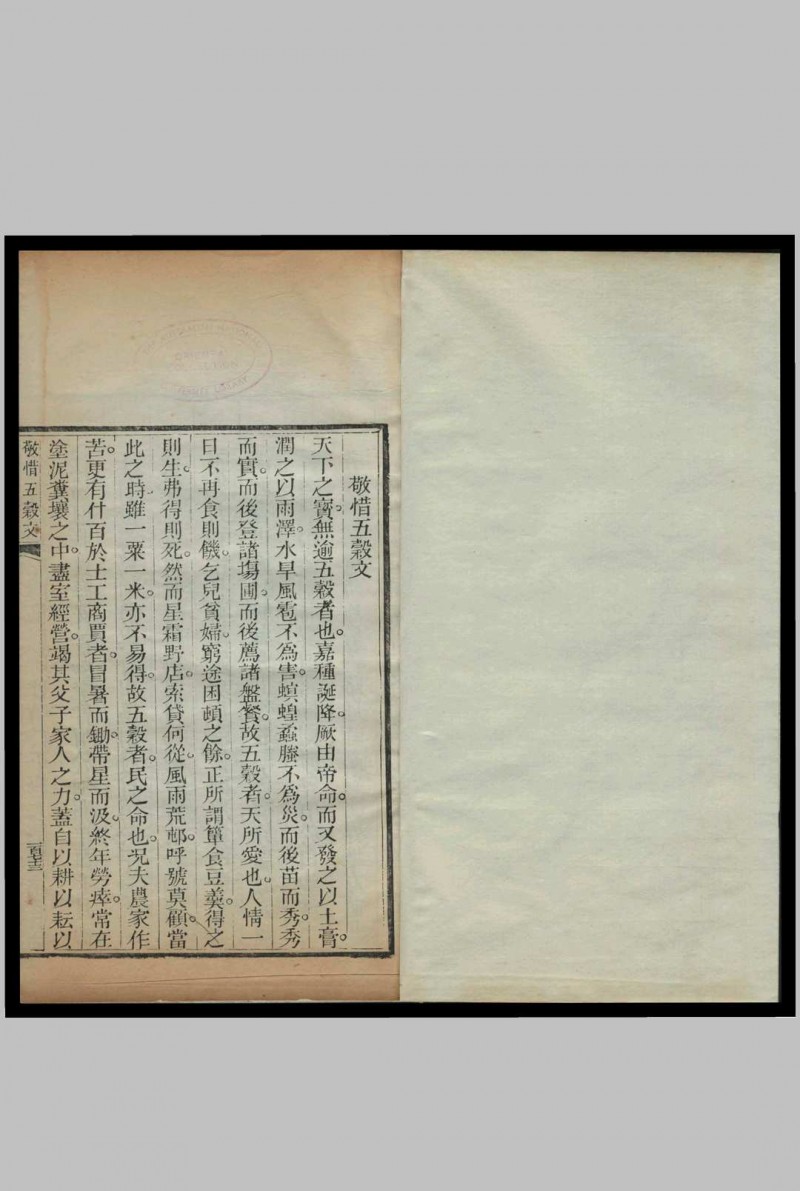 敬惜五穀文
天下之寶。無逾五穀者也。嘉種誕降。厥由帝命。而又發之以土膏。
潤之以雨澤。水旱風雹不為害。螟蝗蟊螣不為災。而後苗而秀。秀
而實。而後登諸塲圃。而後薦諸盤餐。故五穀者。天所愛也。人情一
日不再食則饑。乞兒貧婦。窮途困頓之餘。正所謂簞食豆羹。得之
則生。弗得則死。然而星霜野店。索貸何從。風雨荒邨。呼號莫顧。當
此之時。雖一粟一米。亦不易得。故五穀者。民之命也。况夫農家作
苦。更有什百於士工商賈者。冒暑而鋤。帶星而汲。終年勞瘁。常在
塗泥糞壤之中。盡室經營。竭其父子家人之力。蓋自以耕以耘以
敬惜五穀文